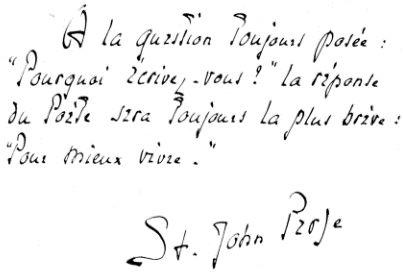 À la question toujours posée :
"Pourquoi écrivez-vous ?" la réponse
du Poète sera toujours la plus brève :
"Pour mieux vivre."
St. John Perse